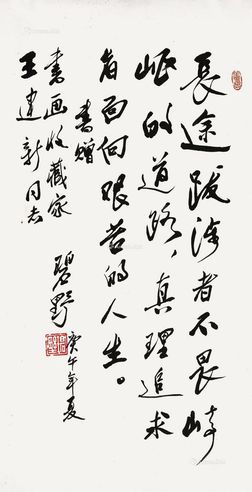 長途跋涉者不畏崎
岖的道路，真理追求
者面向艰苦的人生。
書赠
書画收藏家
王建新同志
碧野
庚午年夏